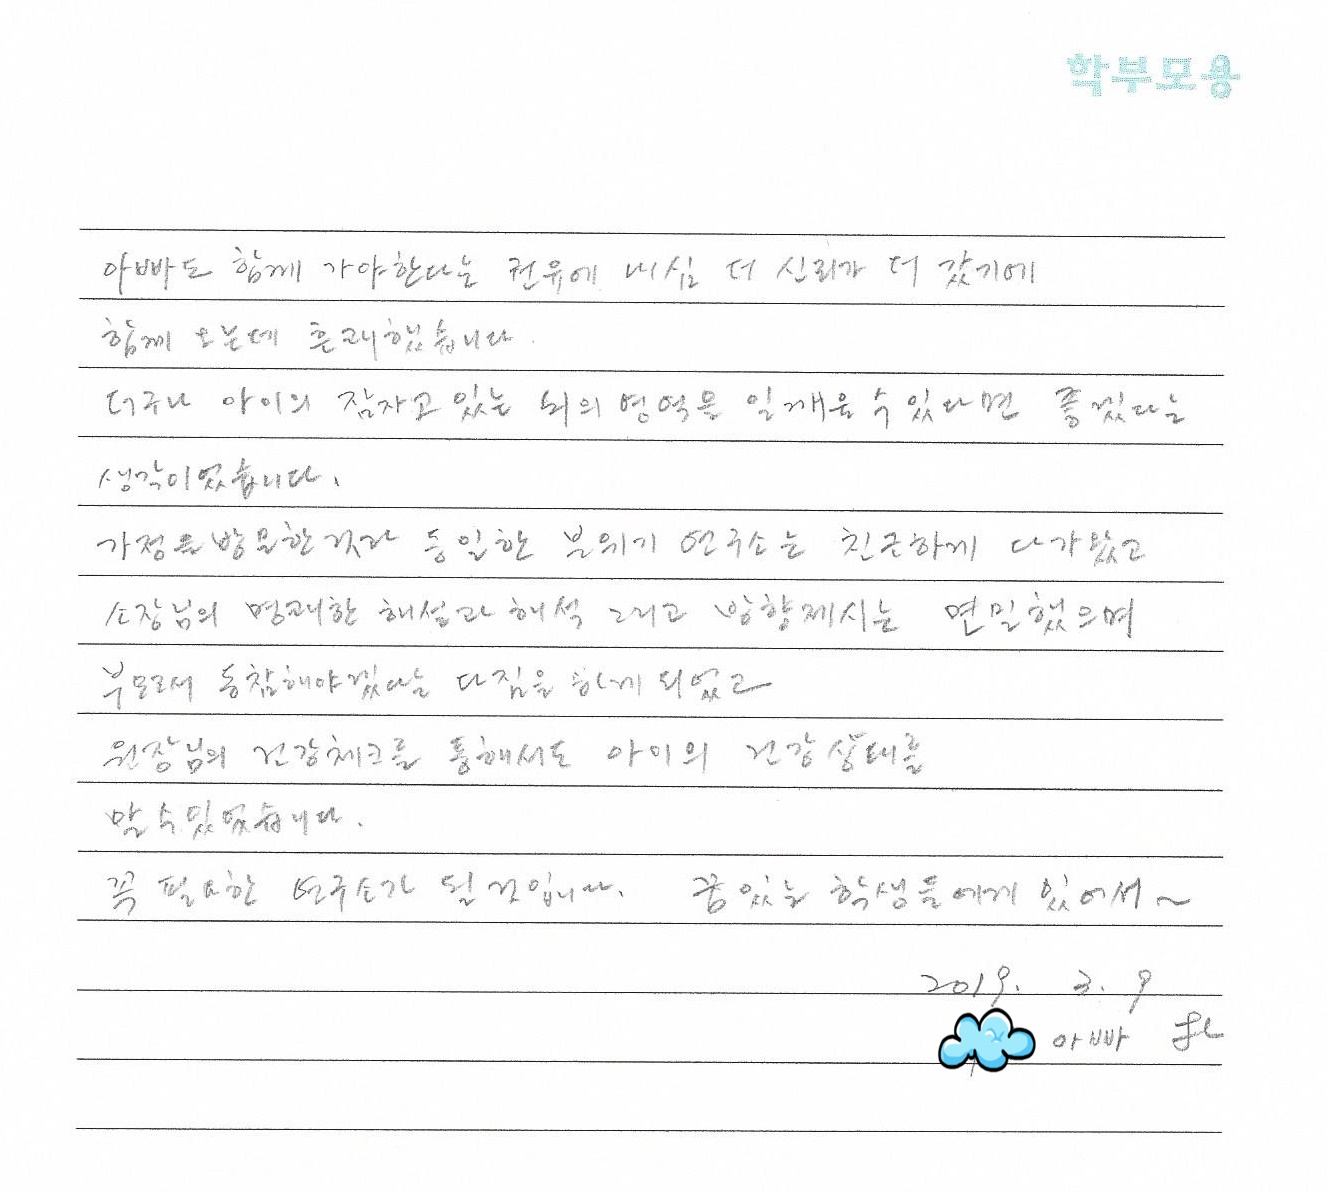 학부모용
아빠도 함께 가야한다는 권유에 내심 더 신뢰가 더 갔기에
함께 오는데 흔쾌했습니다.
더구나 아이의 잠자고 있는 뇌의 영역을 일깨울 수 있다면 좋겠다는
생각이었습니다.
가정을 방문한 것과 동일한 분위기 연구소는 친근하게 다가왔고
소장님의 명쾌한 해설과 해석 그리고 방향제시는 면밀했으며
부모로서 동참해야겠다는 다짐을 하게 되었고
원장님의 건강체크를 통해서도 아이의 건강상태를
알 수 있었습니다.
꼭 필요한 연구소가 될 것입니다. 꿈있는 학생들에게 있어서~
2019. 3. 9
아빠